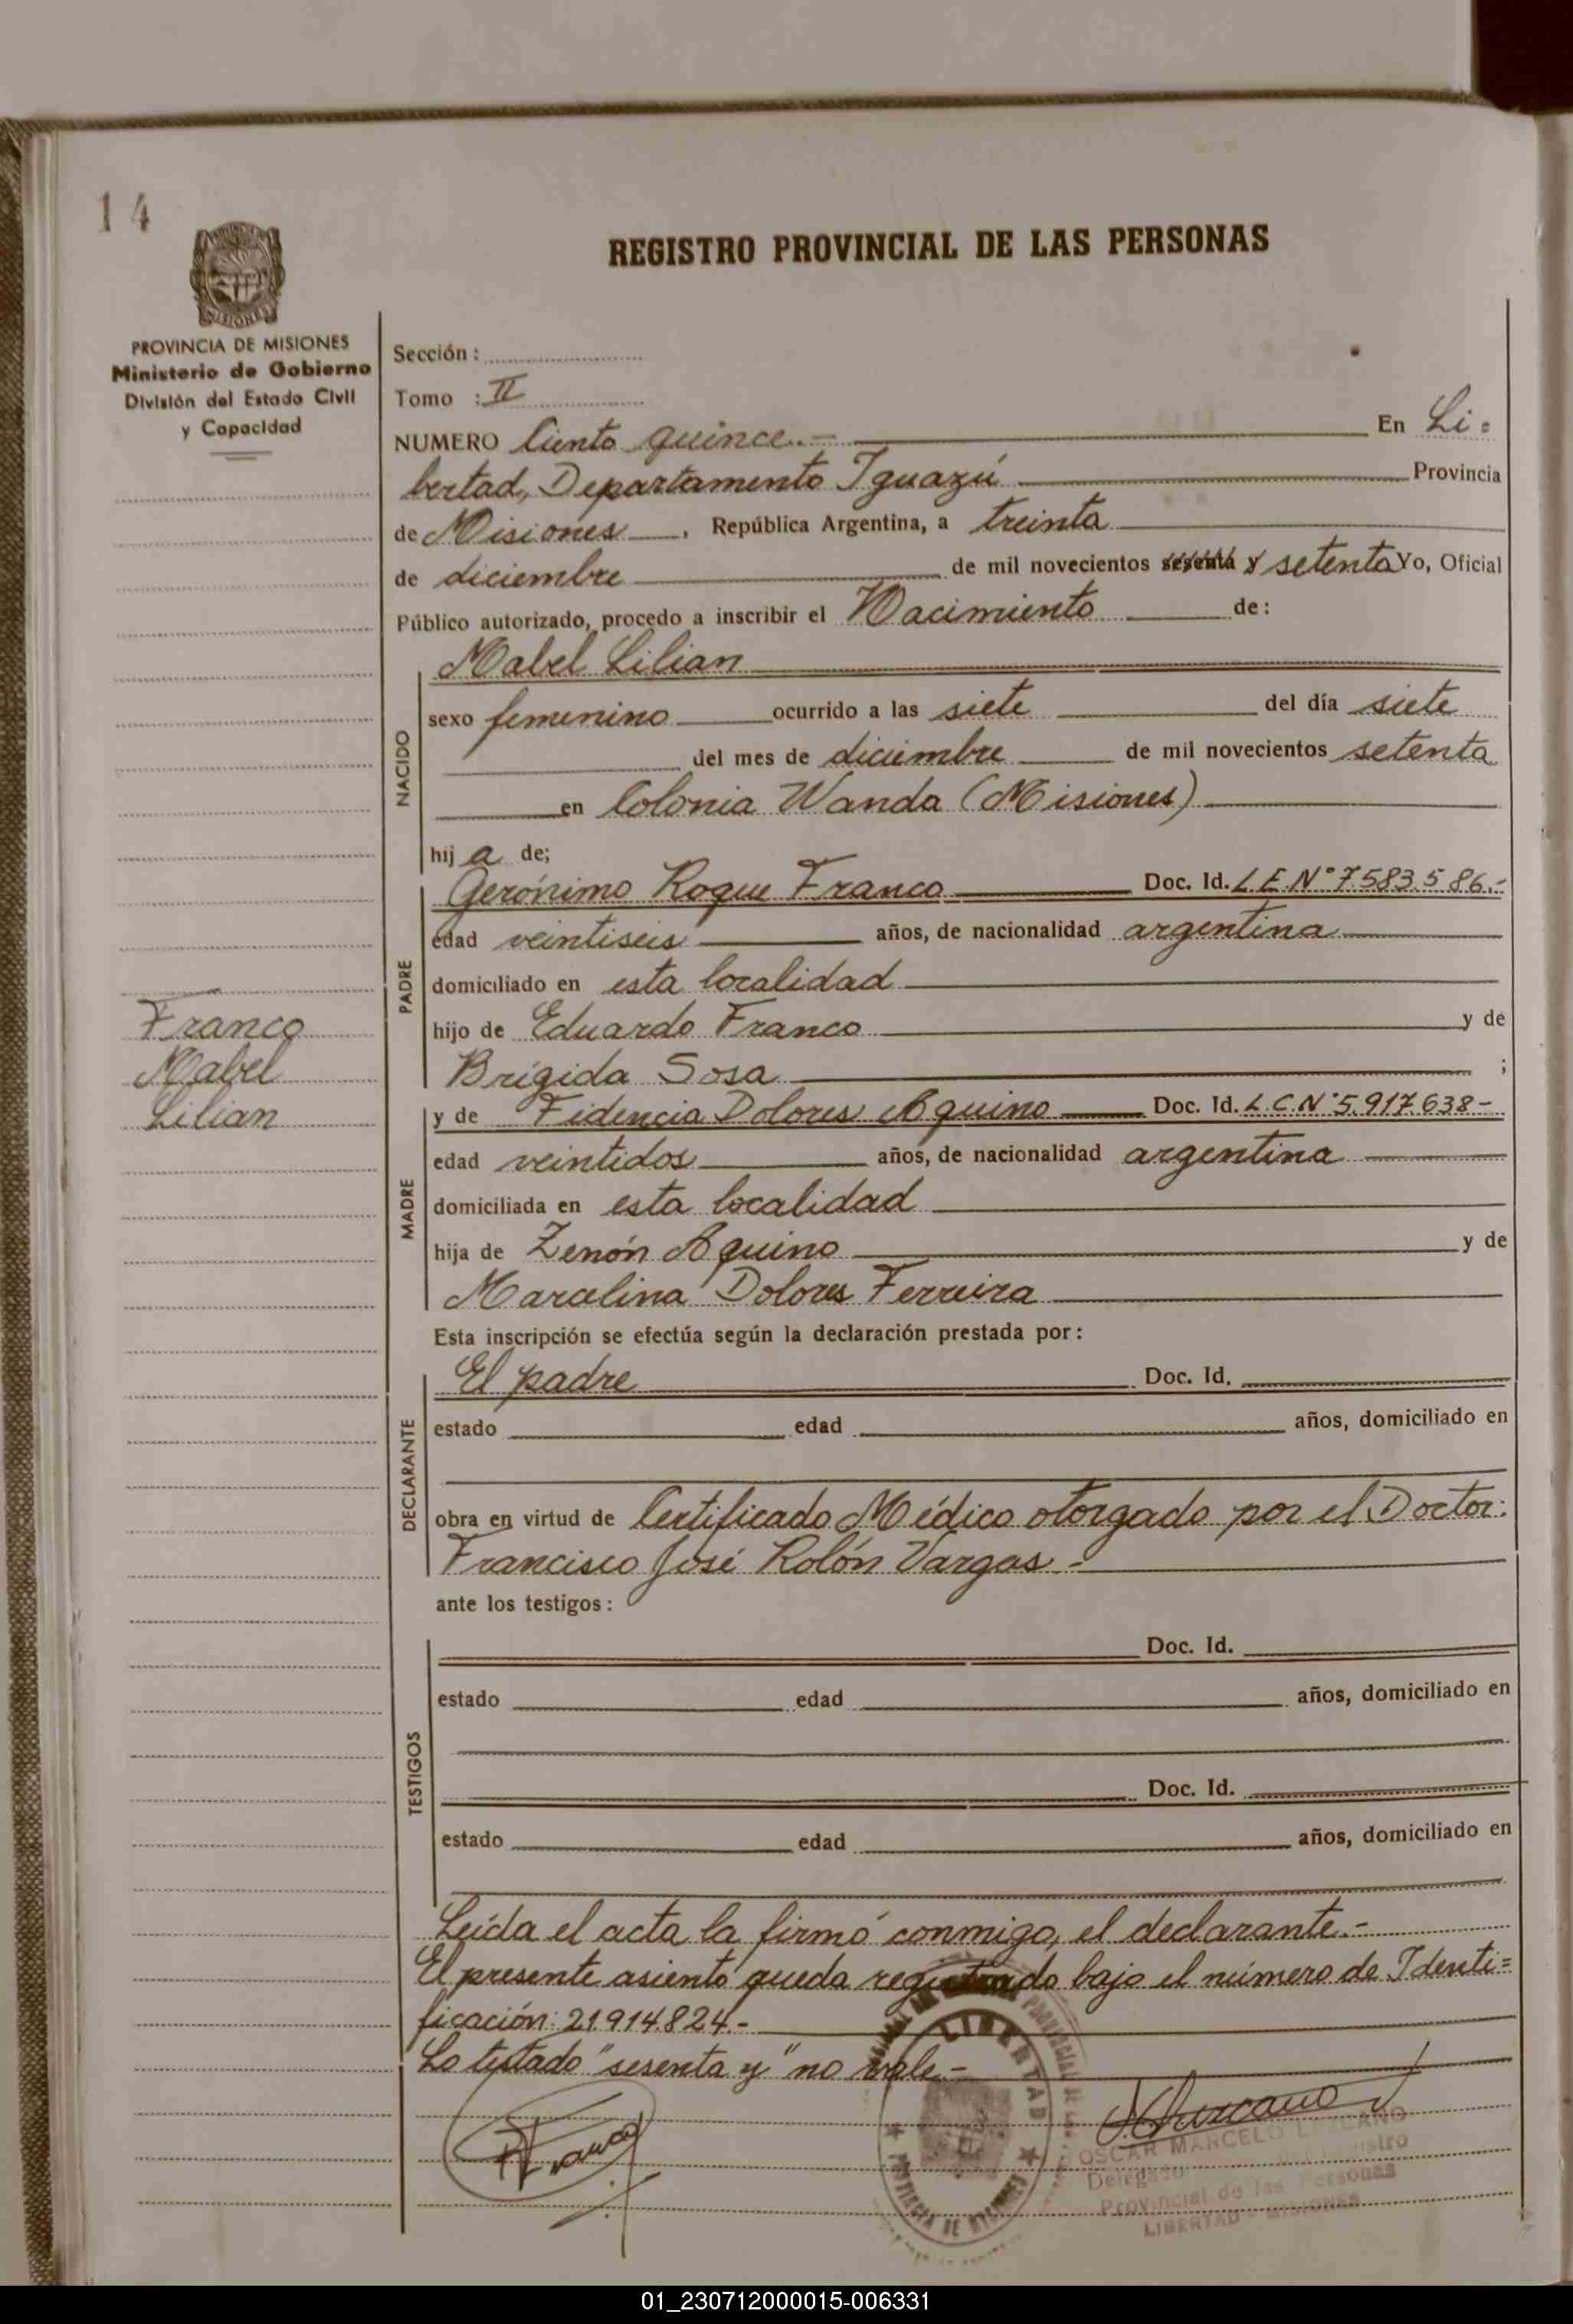 14
REGISTRO PROVINCIAL DE LAS PERSONAS
MISIONES
PROVINCIA DE MISIONES
Ministerio de Gobierno
División del Estado Civil
y Capacidad
Sección :
Tomo : II
NUMERO Ciento quince.- En Li=
bertad, Departamento Iguazú Provincia
de Misiones , República Argentina, a treinta
de diciembre de mil novecientos sesenta y setenta Yo, Oficial
Público autorizado, procedo a inscribir el Nacimiento de:
NACIDO
Mabel Lilian
sexo femenino ocurrido a las siete del día siete
del mes de diciembre de mil novecientos setenta
en Colonia Wanda (Misiones)
hij a de;
PADRE
Gerónimo Roque Franco Doc. Id. L.E.Nº 7.583.586.-
edad veintiseis años, de nacionalidad argentina
domiciliado en esta localidad
hijo de Eduardo Franco y de
Brígida Sosa ;
Franco
Mabel
Lilian
MADRE
y de Fidencia Dolores Aquino Doc. Id. L.C.Nº 5.917.638-
edad veintidos años, de nacionalidad argentina
domiciliada en esta localidad
hija de Zenón Aquino y de
Marcelina Dolores Ferreira
Esta inscripción se efectúa según la declaración prestada por:
DECLARANTE
El padre Doc. Id.
estado edad años, domiciliado en
obra en virtud de Certificado Médico otorgado por el Doctor:
Francisco José Rolón Vargas.-
ante los testigos:
TESTIGOS
Doc. Id.
estado edad años, domiciliado en
Doc. Id.
estado edad años, domiciliado en
Leída el acta la firmó conmigo, el declarante.-
El presente asiento queda registrado bajo el número de Identi=
ficación: 21.914.824.-
Lo testado "sesenta y" no vale.-
LIBERTAD
PROVINCIA DE MISIONES
Franco
OSCAR MARCELO LEZCANO
Delegado
Provincial de las Personas
LIBERTAD - MISIONES
01_230712000015-006331